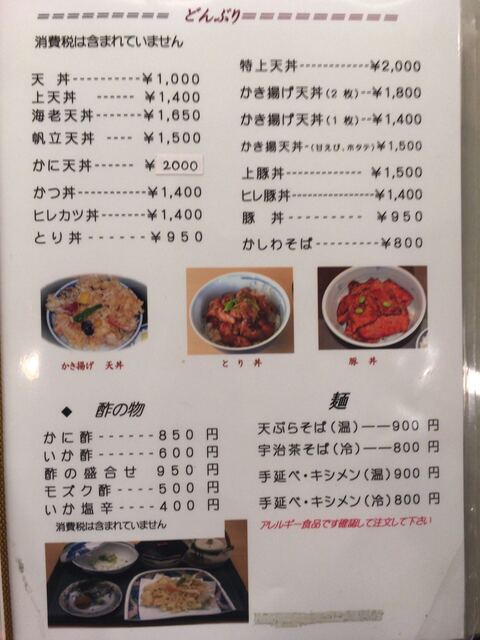 どんぶり
消費税は含まれていません
天 丼----------￥1,000
上天丼 ------ ￥1,400
海老天丼-------￥1,650
帆立天丼 ---- ￥1,500
かに天丼------ ￥2000
かつ丼---------￥1,400
ヒレカツ丼------￥1,400
とり丼 -------￥950
特上天丼-------------￥2,000
かき揚げ天丼(2 枚)--￥1,800
かき揚げ天丼(1 枚)--￥1,400
かき揚天丼-(甘えび、ホタテ)￥1,500
上豚丼------------￥1,500
ヒレ豚丼----------￥1,400
豚 丼 ----------￥950
かしわそば--------￥800
かき揚げ 天丼
とり丼
豚 丼
◆ 酢の物
かに酢------850 円
いか酢------600 円
酢の盛合せ 950 円
モズク酢----500 円
いか塩辛----400 円
消費税は含まれていません
麺
天ぷらそば(温)――900 円
宇治茶そば(冷)――800 円
手延べ・キシメン(温)900 円
手延べ・キシメン(冷)800 円
アレルギー食品です確認して注文して下さい